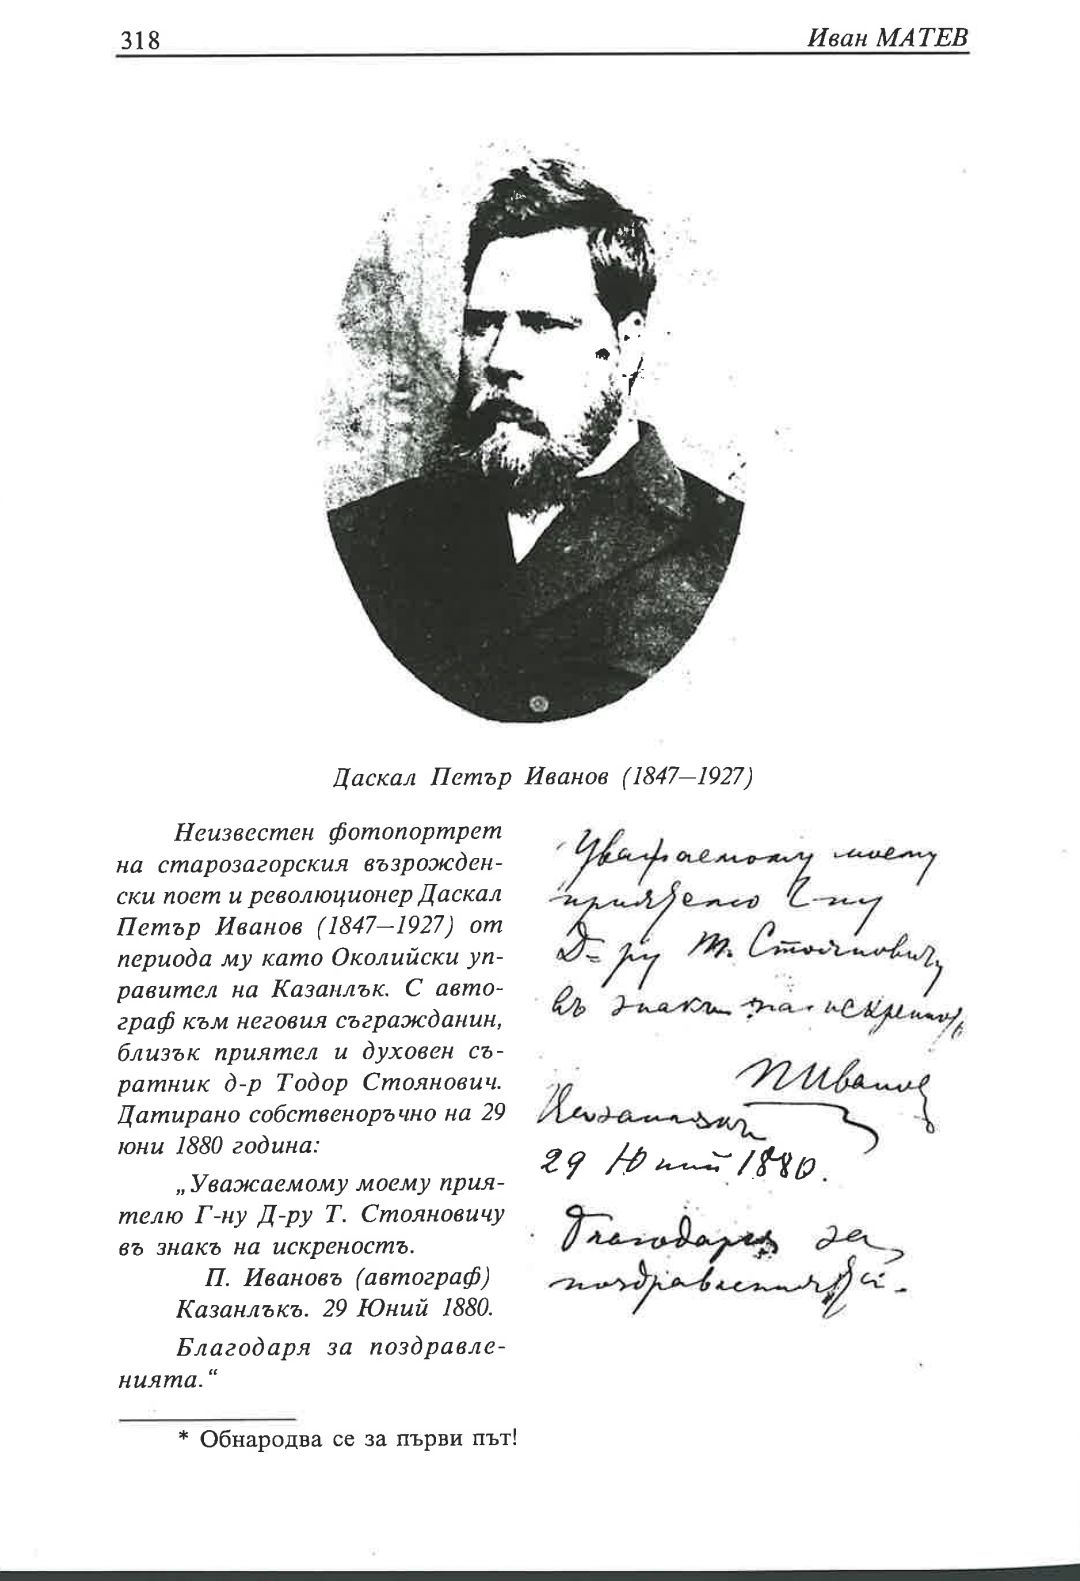 318
Иван МАТЕВ
Даскал Петър Иванов (1847—1927)
Неизвестен фотопортрет
на старозагорския възрожден-
ски поет и революционер Даскал
Петър Иванов (1847—1927) от
периода му като Околийски уп-
равител на Казанлък. С авто-
граф към неговия съгражданин,
близък приятел и духовен съ-
ратник д-р Тодор Стоянович.
Датирано собственоръчно на 29
юни 1880 година:
„Уважаемому моему прия-
телю Г-ну Д-ру Т. Стояновичу
въ знакъ на искреностъ.
П. Ивановъ (автограф)
Казанлъкъ. 29 Юний 1880.
Благодаря за поздравле-
нията.“
* Обнародва се за първи път!
Уважаемому моему
приятелю Г-ну
Д-ру Т. Стояновичу
въ знакъ на искреность
П Иванов
Казанлъкъ
29 Юний 1880.
Благодаря за
поздравленията.